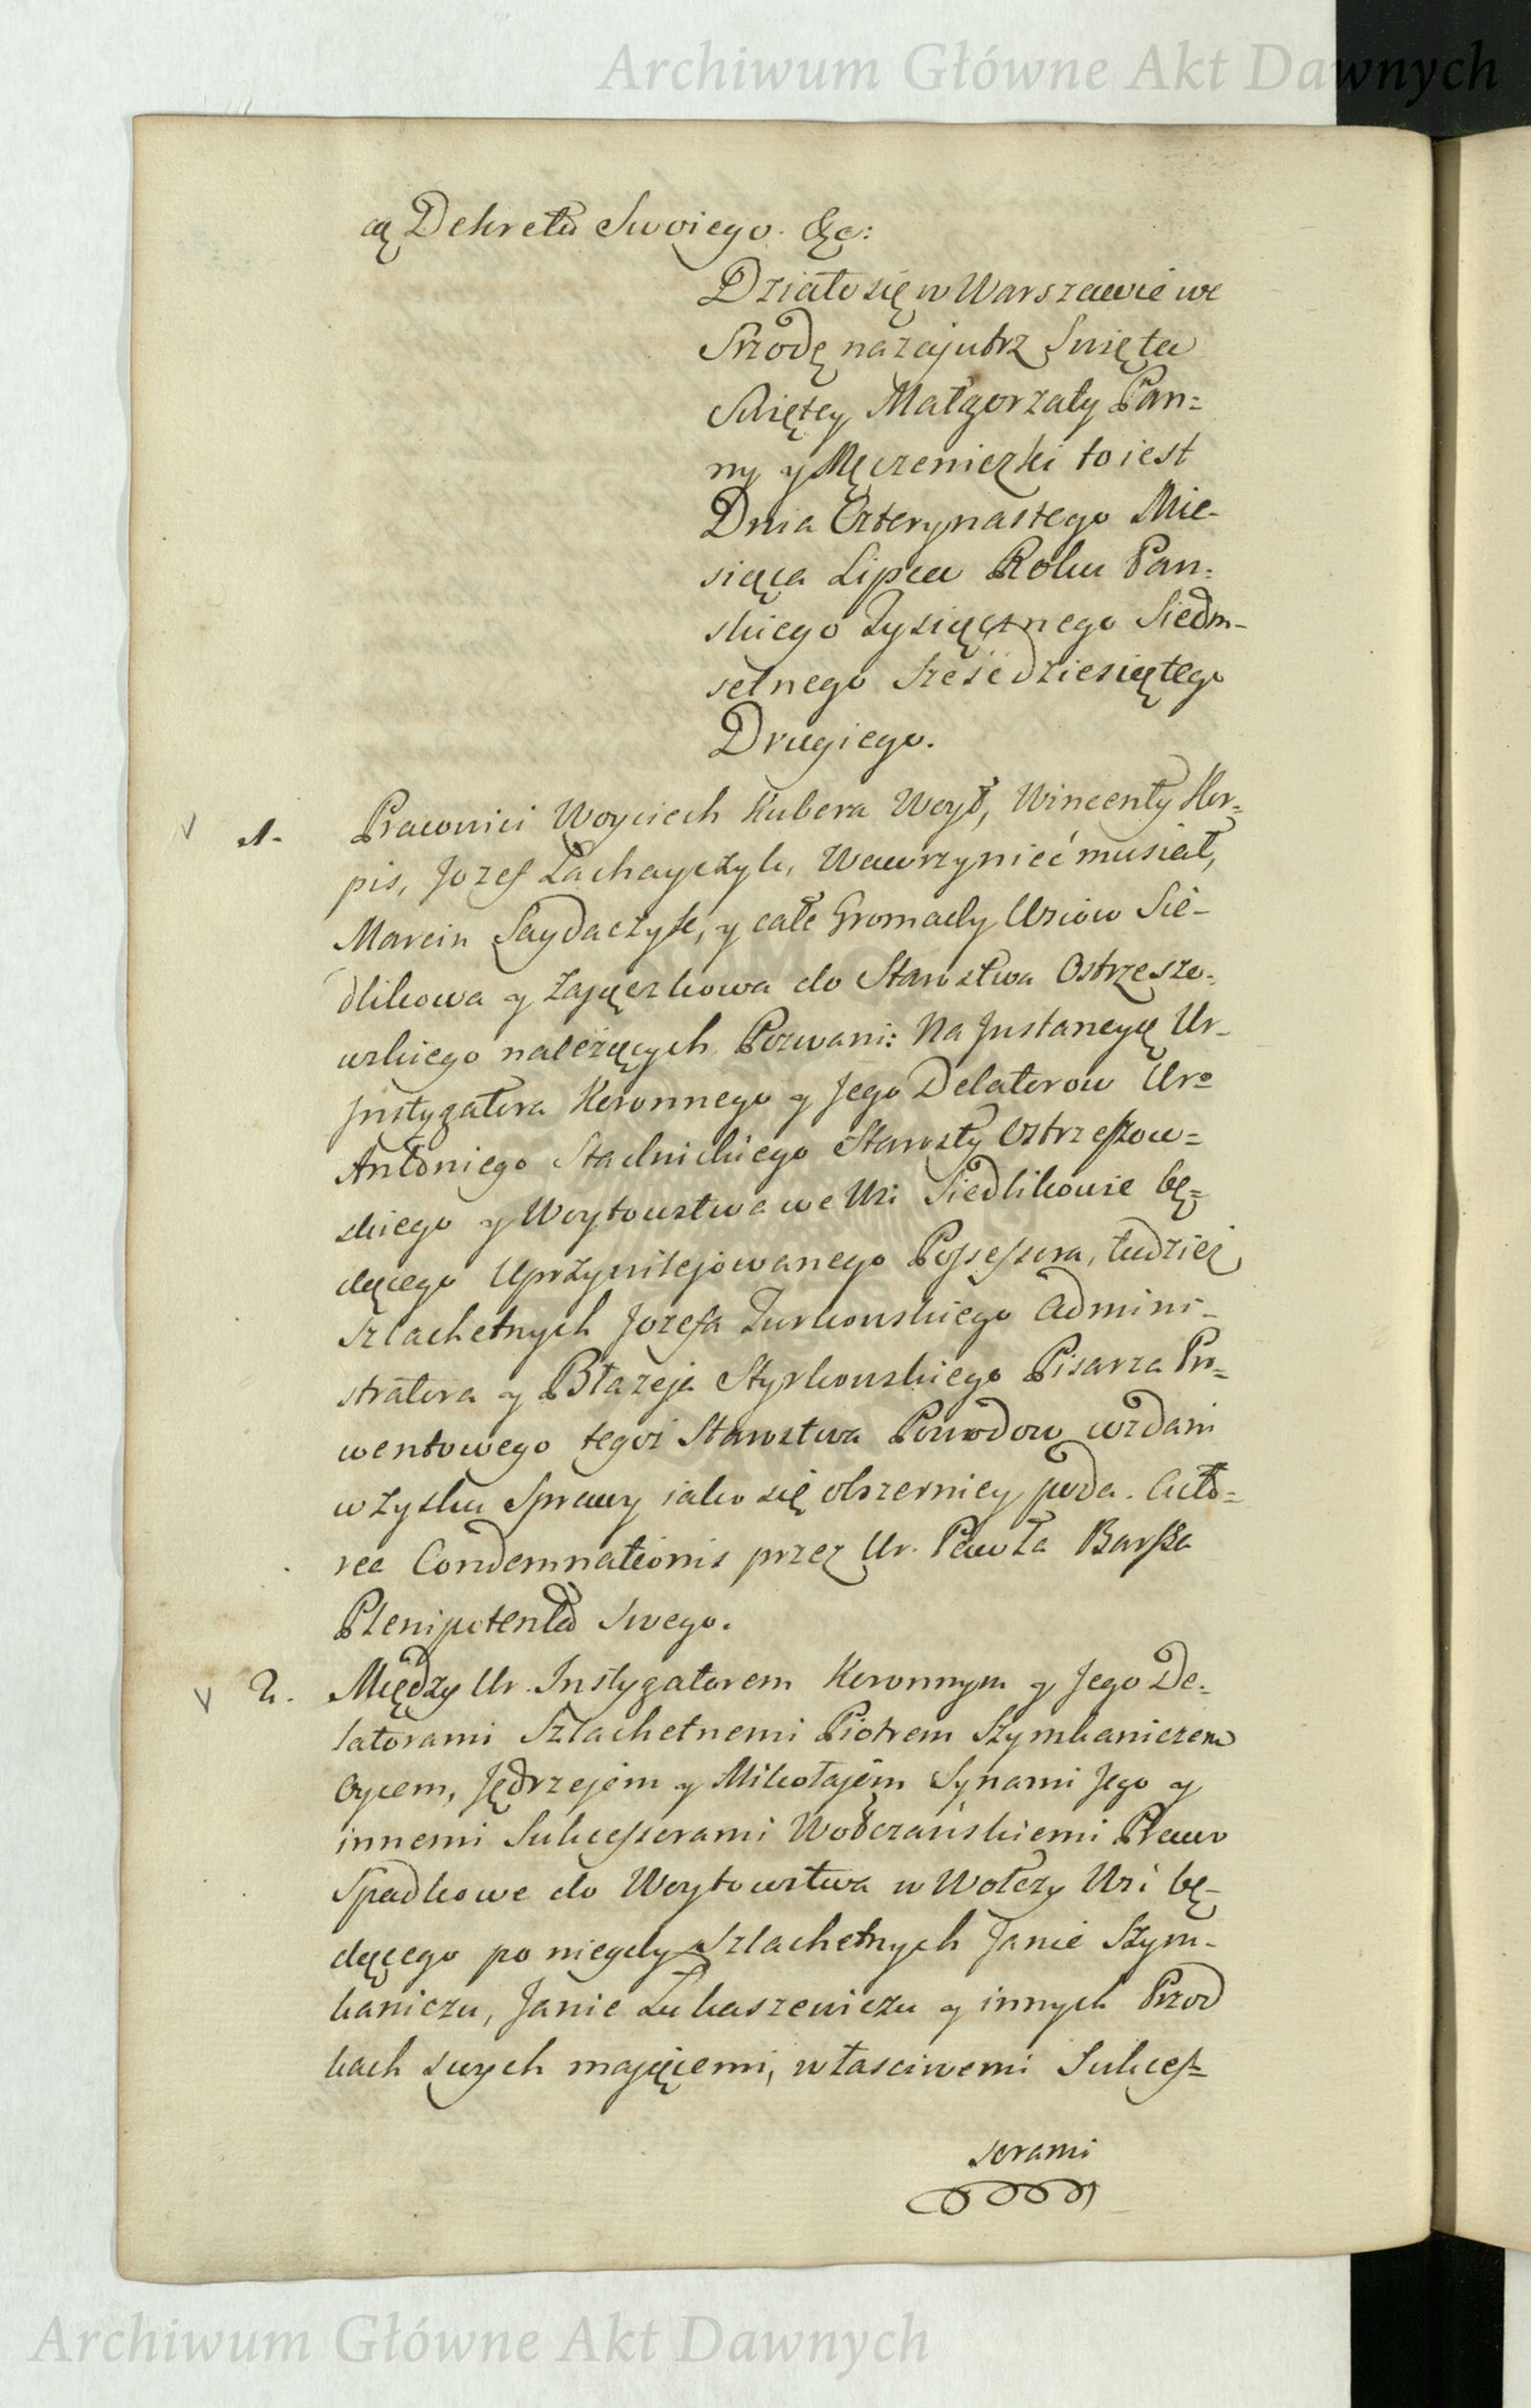 Archiwum Główne Akt Dawnych
cą Dekretu Swoiego. &c:
Działo się w Warszawie we
Srzodę nazajutrz Swięta
Swiętey Małgorzaty Pan=
ny y Męczeniczki to iest
Dnia Czterynastego Mie-
siąca Lipca Roku Pan=
skiego Tysiącznego Siedm-
setnego Sześćdziesiątego
Drugiego.
1. Pracowici Woyciech Kubera Woyt, Wincenty Kor=
pis, Jozef Zachayczyk, Wawrzyniec musiał,
Marcin Saydaczyk, y całe Gromady Wsiow Sie-
dlikowa y Zajączkowa do Starostwa Ostrzeszo-
wskiego należących Pozwani: Na Instancyą Ur-
Instygatora Koronnego y Jego Delatorow Uro
Antoniego Stadnickiego Starosty Ostrzeszow=
skiego y Woytowstwa we Wsi Siedlikowie bę=
dącego Uprzywilejowanego Possessora, tudziesz
Szlachetnych Jozefa Turkowskiego Admini-
stratora y Błazeja Styrkowskiego Pisarza Pro=
wentowego tegoż Starostwa Powodow wzdani
w Zysku Sprawy iako się obszerniey poda. Acto=
rea Condemnationis przez Ur. Pawła Barssa
Plenipotenta Swego.
2. Między Ur. Instygatorem Koronnym y Jego De=
latorami Szlachetnemi Piotrem Szymkaniczem
Oycem, Jędrzejem y Mikołajem Synami Jego y
innemi Sukcessorami Wołczańskiemi Prawo
Spadkowe do Woytowstwa w Wołczy Wsi bę-
dącego po niegdy Szlachetnych Janie Szym-
kaniczu, Janie Lukaszewiczu y innych Przod
kach swych mającemi, własciwemi Sukces=
sorami
Archiwum Główne Akt Dawnych